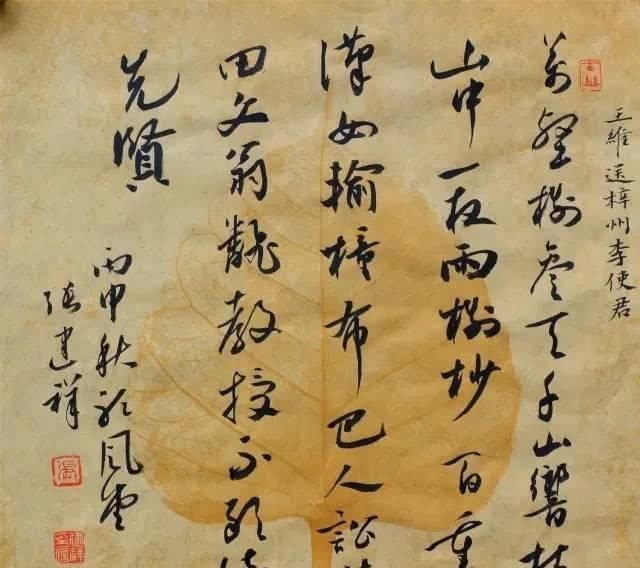 王維送梓州李使君
萬壑樹參天千山響
山中一夜雨樹杪百重
漢女輸橦布巴人訟
田文翁翻教授不敢
先賢
丙申秋於風
張建祥
張